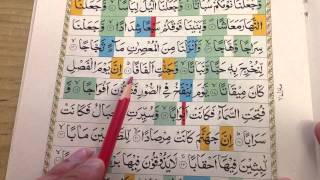 وَّجَعَلْنَا نَوْمَكُمْ سُبَاتًا ۙ وَّجَعَلْنَا الَّيْلَ لِبَاسًا ۙ وَّجَعَلْنَا
النَّهَارَ مَعَاشًا ۪ وَبَنَيْنَا فَوْقَكُمْ سَبْعًا شِدَادًا ۙ وَّجَعَلْنَا
سِرَاجًا وَّهَّاجًا ۪ وَّاَنْزَلْنَا مِنَ الْمُعْصِرٰتِ مَآءً ثَجَّاجًا ۙ
لِّنُخْرِجَ بِهٖ حَبًّا وَّنَبَاتًا ۙ وَّجَنّٰتٍ اَلْفَافًا ؕ اِنَّ يَوْمَ الْفَصْلِ
كَانَ مِيْقَاتًا ۙ يَّوْمَ يُنْفَخُ فِى الصُّوْرِ فَتَاْتُوْنَ اَفْوَاجًا ۙ وَّ
فُتِحَتِ السَّمَآءُ فَكَانَتْ اَبْوَابًا ۙ وَّسُيِّرَتِ الْجِبَالُ فَكَانَتْ
سَرَابًا ؕ اِنَّ جَهَنَّمَ كَانَتْ مِرْصَادًا ۪ لِّلطَّاغِيْنَ مَاٰبًا ۙ
لّٰبِثِيْنَ فِيْهَآ اَحْقَابًا ۚ لَا يَذُوْقُوْنَ فِيْهَا